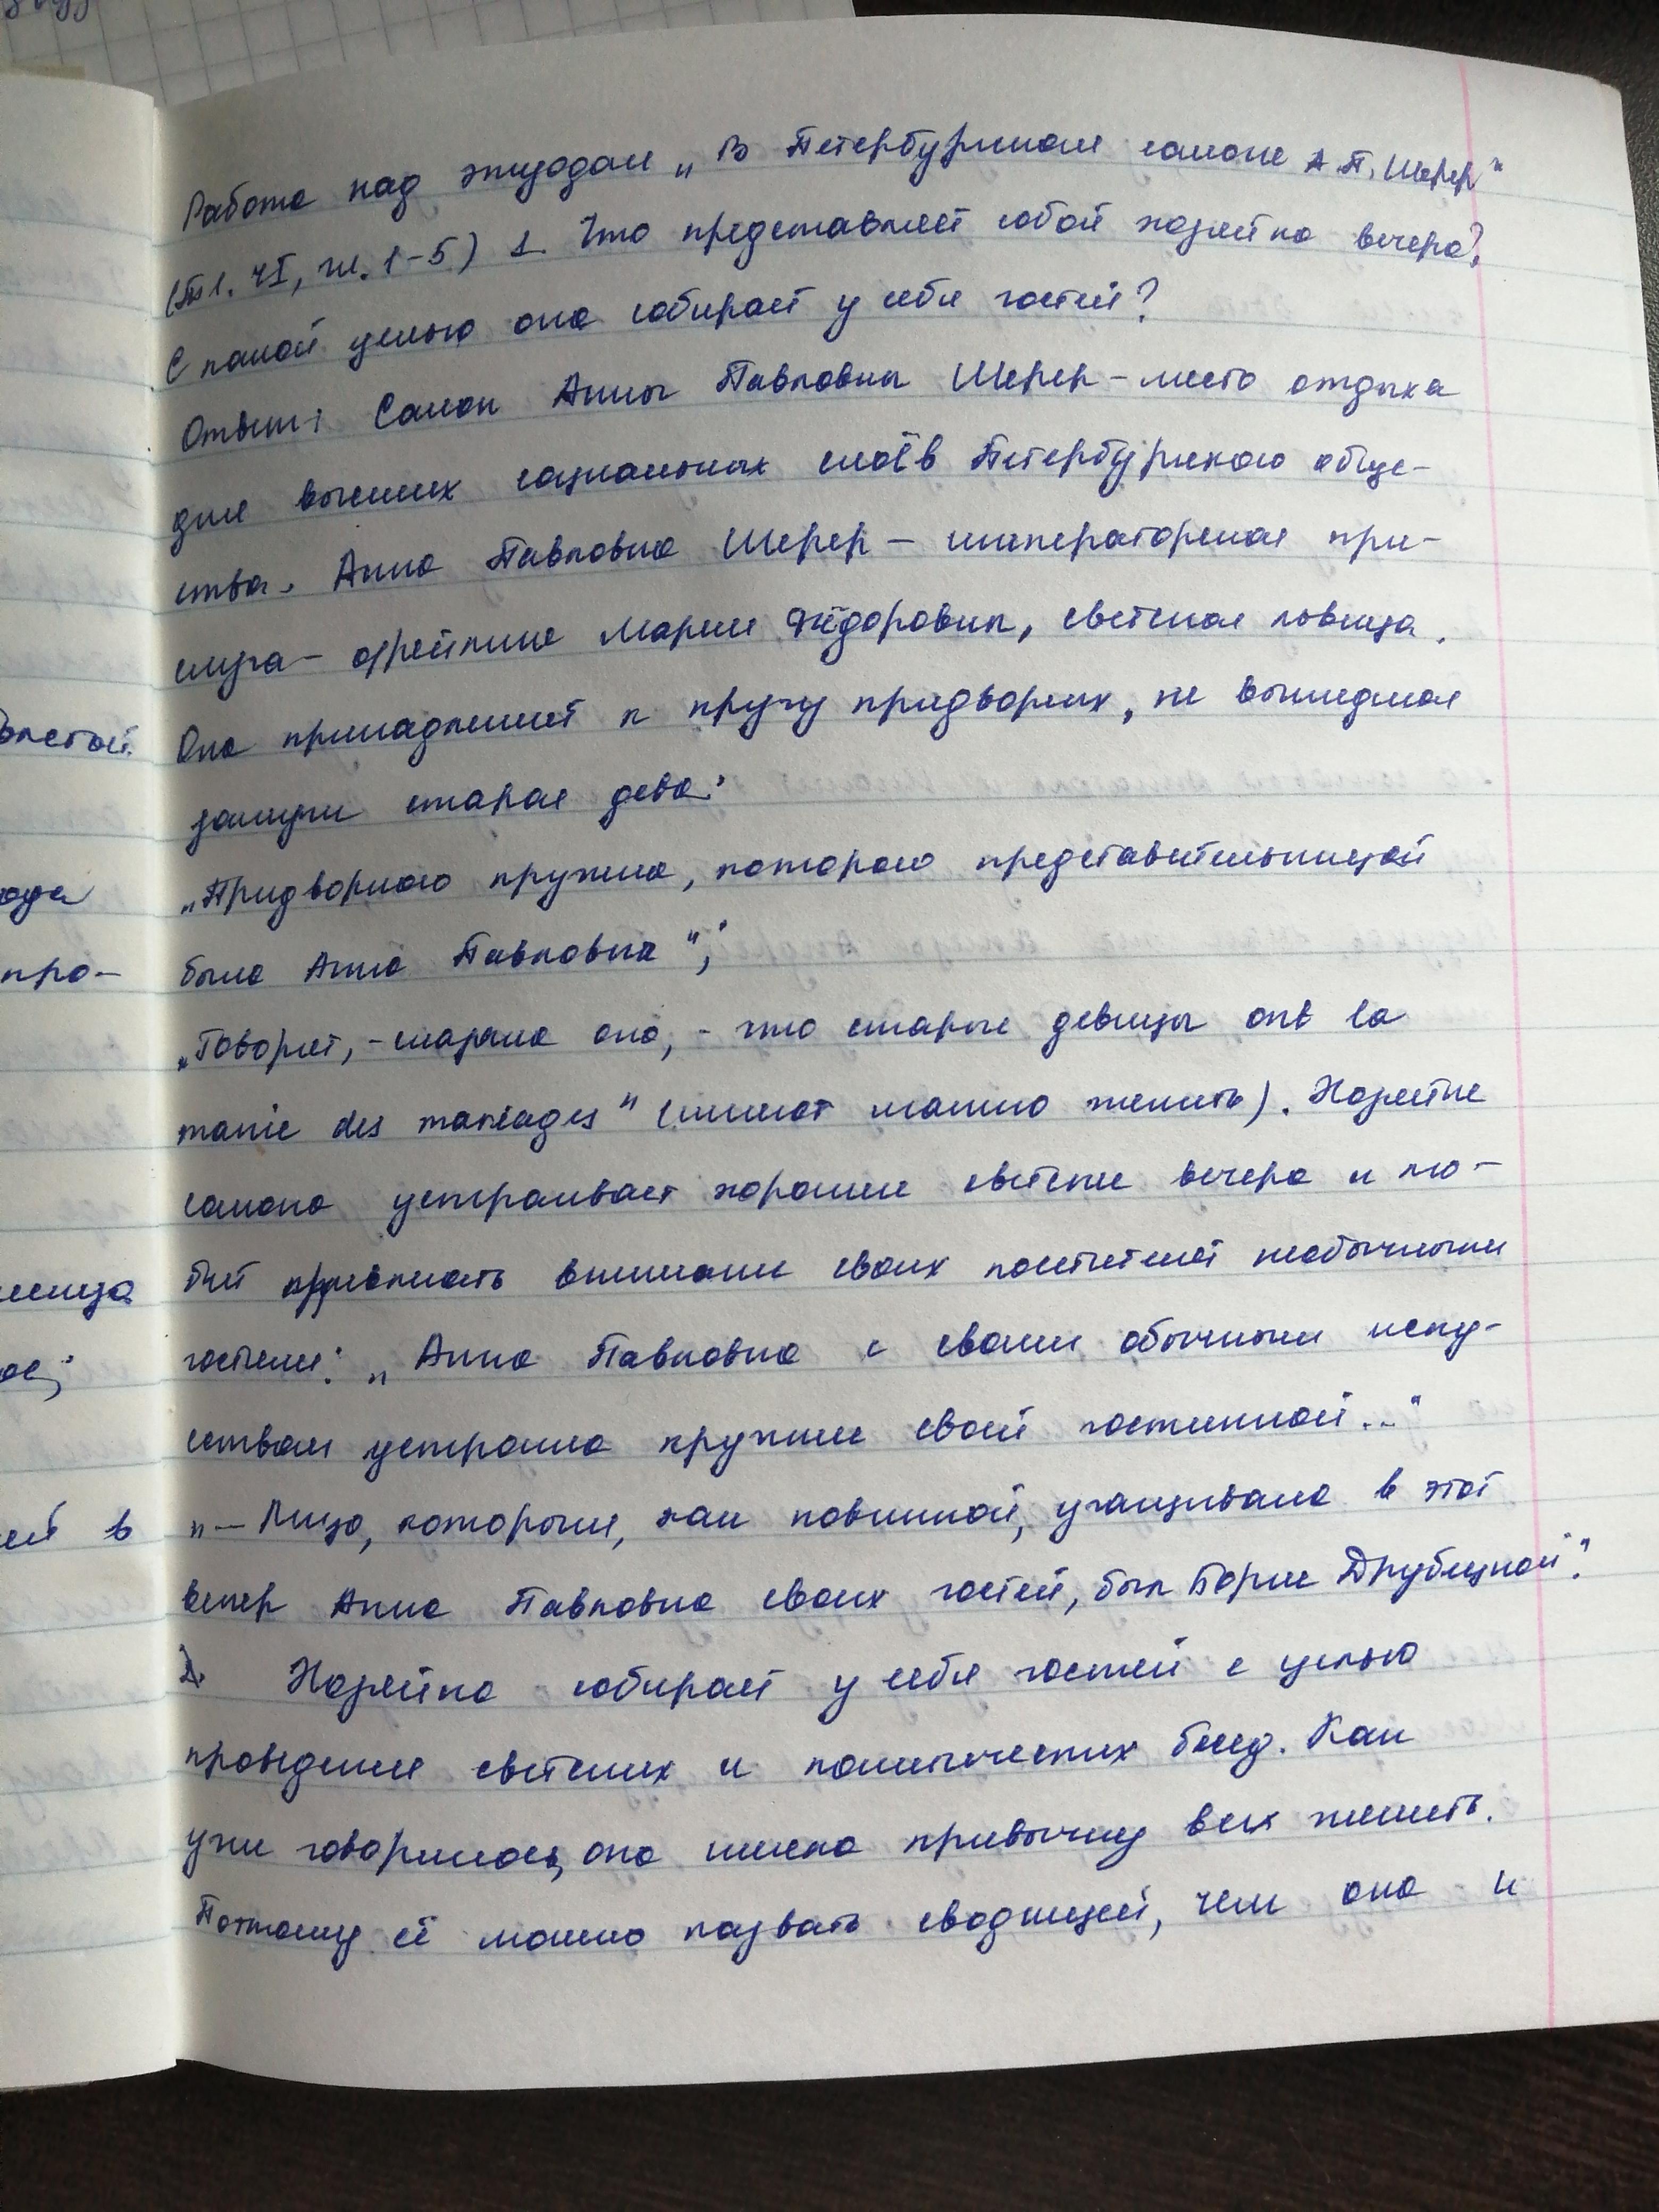 Работа над эпизодом „В Петербургском салоне А.П. Шерер"
(Т1. чI, гл. 1-5) 1. Что представляет собой хозяйка вечера?
С какой целью она собирает у себя гостей?
Ответ: Салон Анны Павловны Шерер - место отдыха
для высших социальных слоёв Петербургского обще-
ства. Анна Павловна Шерер - императорская при-
слуга - фрейлина Марии Фёдоровны, светская львица.
Она принадлежит к кругу придворных, не вышедшая
замуж старая дева:
„Придворного кружка, которого представительницей
была Анна Павловна";
„Говорят, - сказала она, - что старые девицы ont la
manie des mariages" (имеют манию женить). Хозяйка
салона устраивает хорошие светские вечера и лю-
бит привлекать внимание своих посетителей необычными
гостями: „Анна Павловна с своим обычным искус-
ством устроила кружки своей гостинной..."
„- Лицо, которым, как новинкой, угащивала в этот
вечер Анна Павловна своих гостей, был Борис Друбецкой".
2. Хозяйка собирает у себя гостей с целью
проведения светских и политических бесед. Как
уже говорилось, она имела привычку всех женить.
Поэтому её можно назвать сводницей, чем она и
олстой.
ода
про-
ница
ое;
ей в